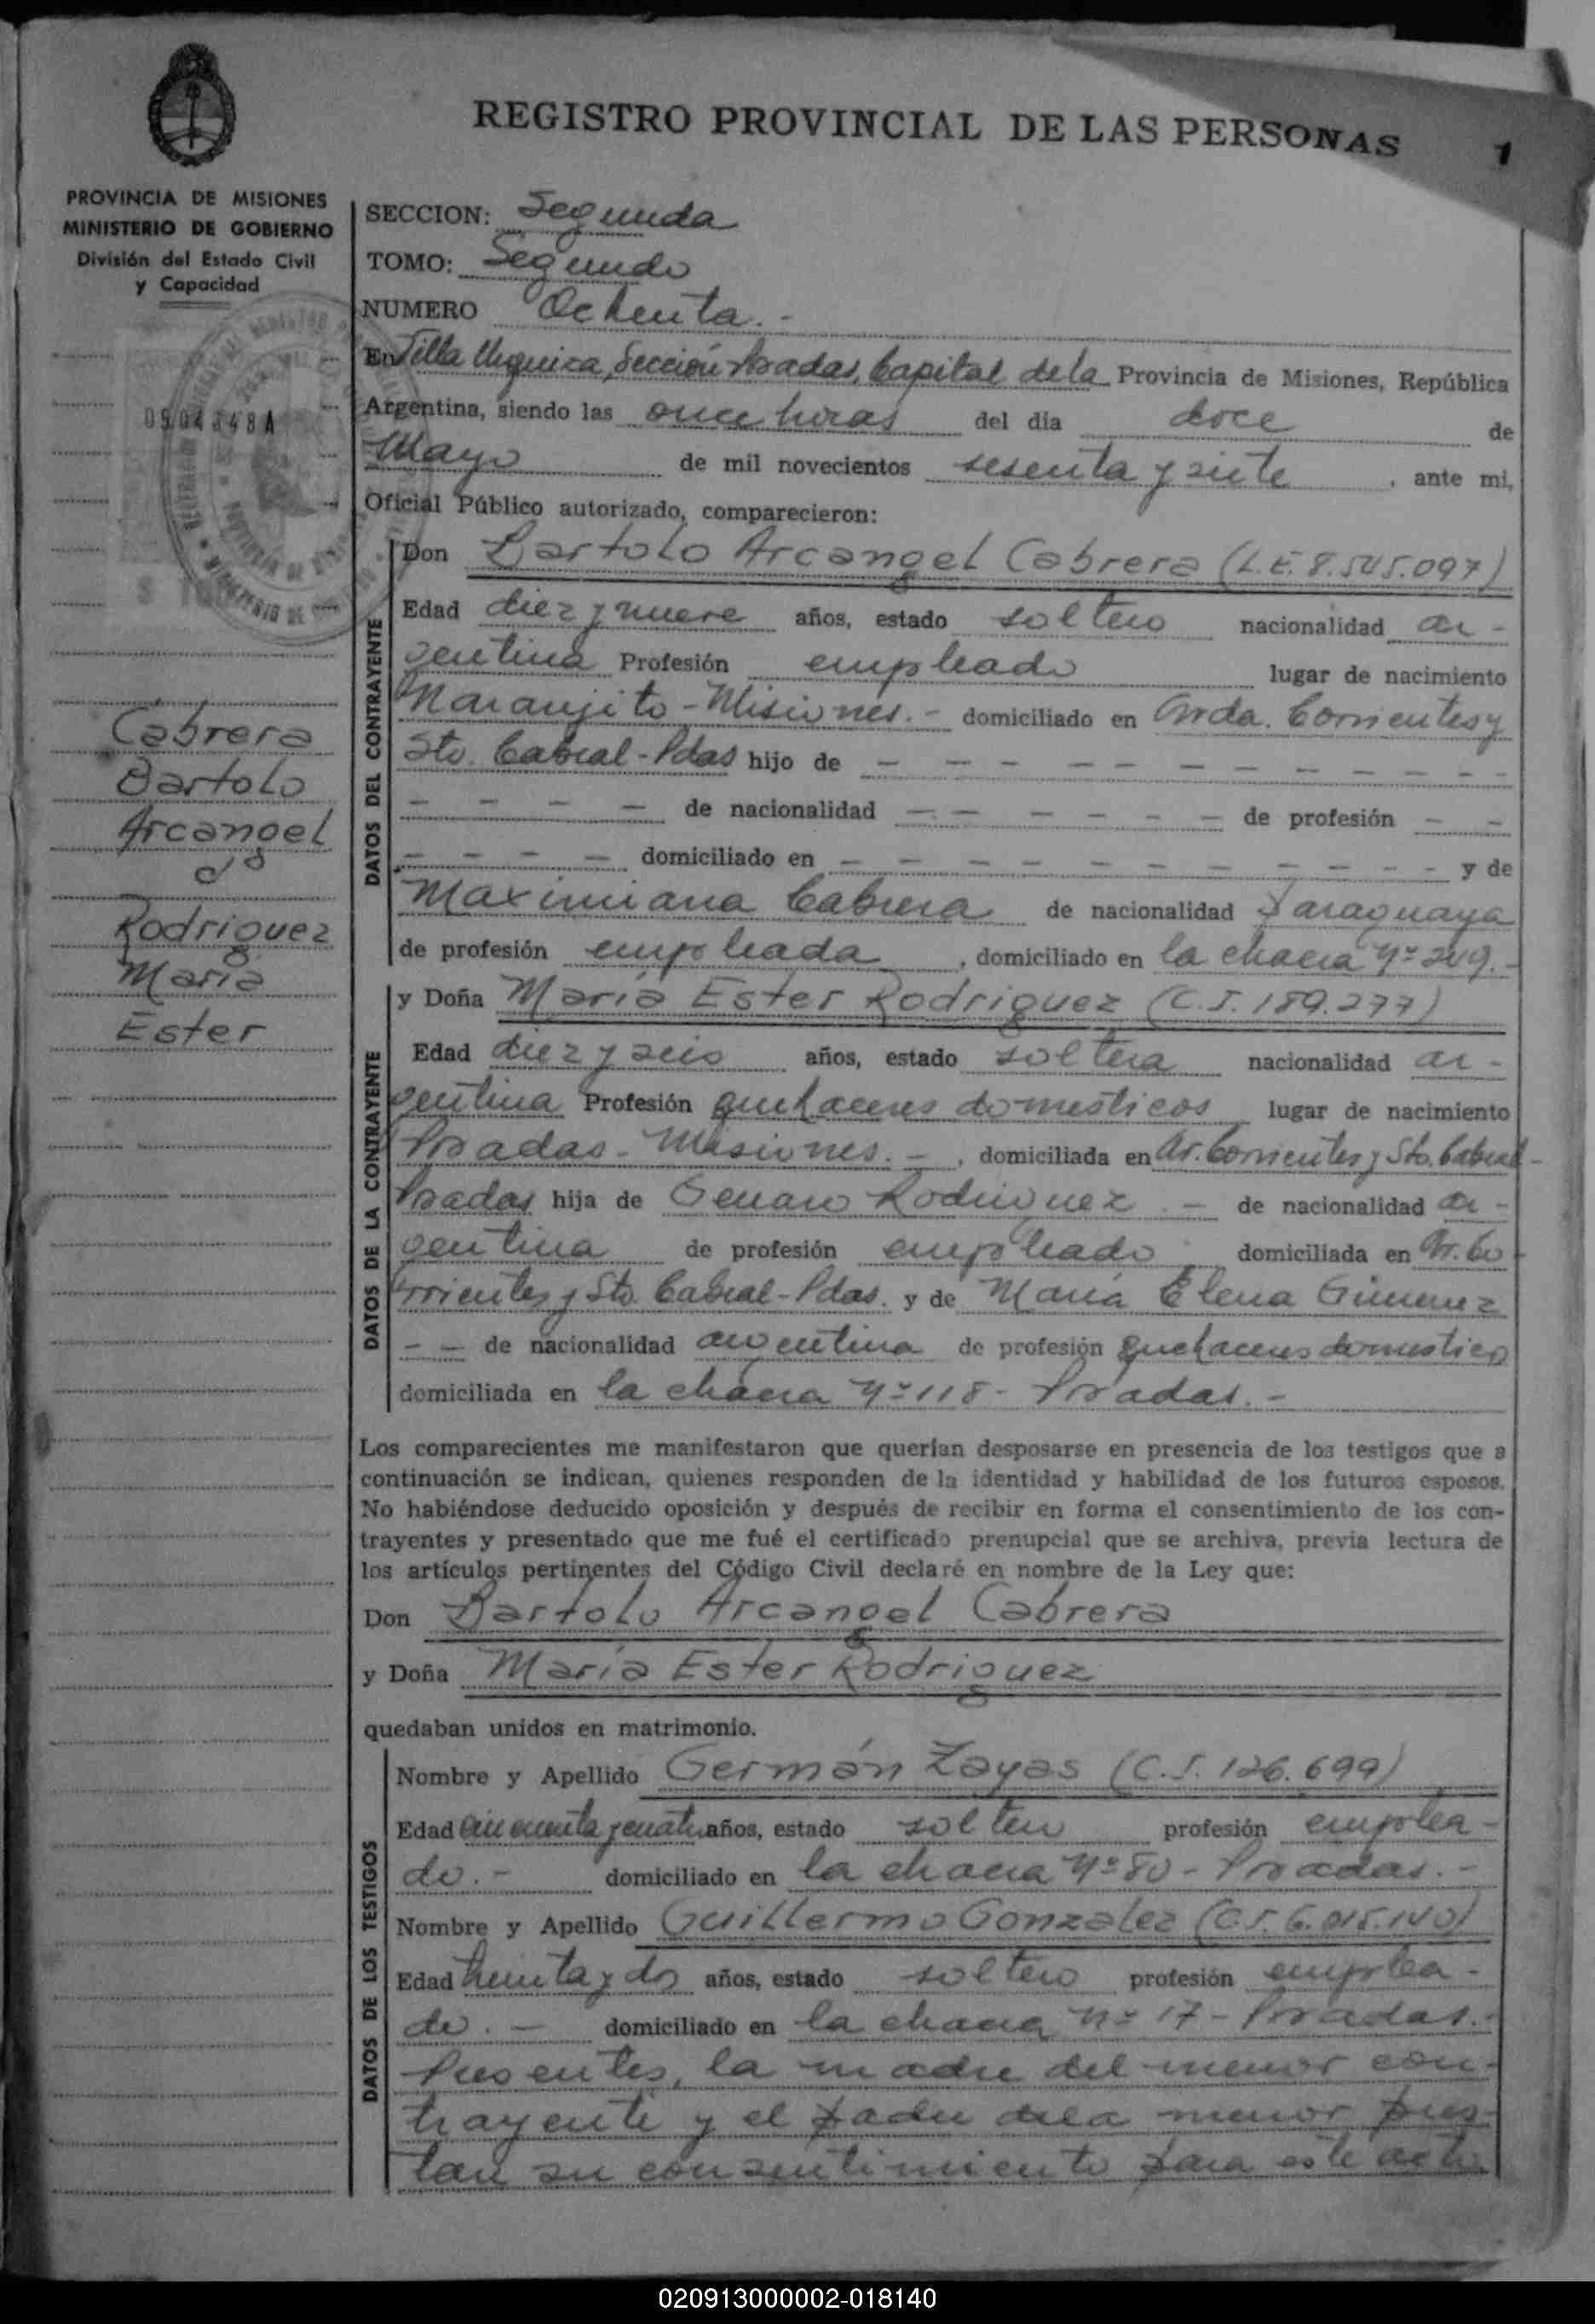 REGISTRO PROVINCIAL DE LAS PERSONAS
1
PROVINCIA DE MISIONES
MINISTERIO DE GOBIERNO
División del Estado Civil
y Capacidad
Cabrera
Bartolo
Arcangel
Rodriguez
María
Ester
SECCION: Segunda
TOMO: Segundo
NUMERO Ochenta.-
En Villa Urquiza, Sección Posadas, Capital de la Provincia de Misiones, República
Argentina, siendo las once horas del dia doce de
Mayo de mil novecientos sesenta y siete, ante mi,
Oficial Público autorizado, comparecieron:
DATOS DEL CONTRAYENTE
Don Bartolo Arcangel Cabrera (L.E. 8.545.097)
Edad diez y nueve años, estado soltero nacionalidad ar-
gentina Profesión empleado lugar de nacimiento
Naranjito - Misiones.- domiciliado en Avda. Corrientes y
Sto. Cabral - Pdas hijo de - - - - - - - - - - - -
- - - - de nacionalidad - - - - - - de profesión - -
- - - - domiciliado en - - - - - - - - - - - y de
Maximiana Cabrera de nacionalidad Paraguaya
de profesión empleada, domiciliado en la chacra Nº 249.-
DATOS DE LA CONTRAYENTE
y Doña María Ester Rodriguez (C.I. 189.277)
Edad diez y seis años, estado soltera nacionalidad ar-
gentina Profesión quehaceres domesticos lugar de nacimiento
Posadas - Misiones.-, domiciliada en Av. Corrientes y Sto. Cabral-
Posadas hija de Genaro Rodriguez.- de nacionalidad ar-
gentina de profesión empleado domiciliada en Av. Co
rrientes y Sto Cabral - Pdas. y de María Elena Gimenez
- - de nacionalidad argentina de profesión quehaceres domestico
domiciliada en la chacra Nº 118 - Posadas.-
Los comparecientes me manifestaron que querían desposarse en presencia de los testigos que a
continuación se indican, quienes responden de la identidad y habilidad de los futuros esposos.
No habiéndose deducido oposición y después de recibir en forma el consentimiento de los con-
trayentes y presentado que me fué el certificado prenupcial que se archiva, previa lectura de
los artículos pertinentes del Código Civil declaré en nombre de la Ley que:
Don Bartolo Arcangel Cabrera
y Doña María Ester Rodriguez
quedaban unidos en matrimonio.
DATOS DE LOS TESTIGOS
Nombre y Apellido Germán Zayas (C.I. 126.699)
Edad cincuenta y cuatro años, estado soltero profesión emplea-
do.- domiciliado en la chacra Nº 80 - Posadas.-
Nombre y Apellido Guillermo Gonzalez (C.I. 6.015.140)
Edad treinta y dos años, estado soltero profesión emplea-
do.- domiciliado en la chacra Nº 17 - Posadas.-
Presentes, la madre del menor con-
trayente y el padre de la menor pres-
tan su consentimiento para este acto
020913000002-018140